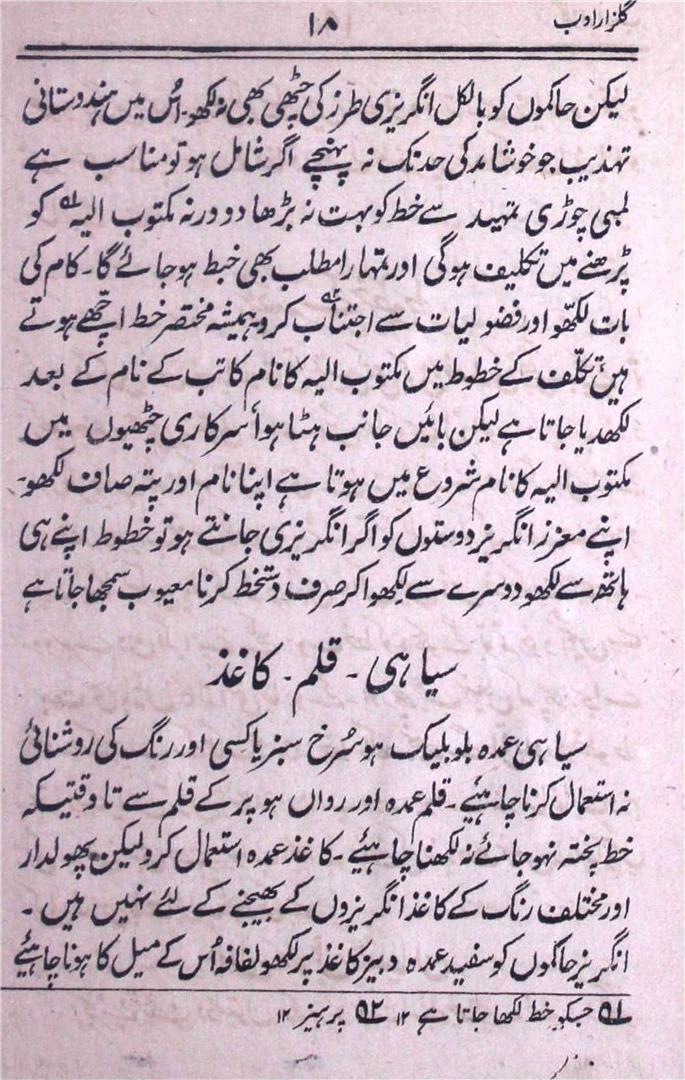 گلزار ادب
۱۸
لیکن حاکموں کو بالکل انگریزی طرز کی چٹھی بھی نہ لکھو۔ اُس میں ہندوستانی
تہذیب جو خوشامد کی حد تک نہ پہنچے اگر شامل ہو تو مناسب ہے
لمبی چوڑی تمہید سے خط کو بہت نہ بڑھا دو ورنہ مکتوب الیہ ؎۱ کو
پڑھنے میں تکلیف ہوگی اور تمہارا مطلب بھی خبط ہو جائے گا۔ کام کی
بات لکھّو اور فضولیات سے اجتناب ؎۲ کرو ہمیشہ مختصر خط اچّھے ہوتے
ہیں تکلّف کے خطوط میں مکتوب الیہ کا نام کاتب کے نام کے بعد
لکھدیا جاتا ہے لیکن بائیں جانب ہٹا ہوا سرکاری چٹھیوں میں
مکتوب الیہ کا نام شروع میں ہوتا ہے اپنا نام اور پتہ صاف لکھو۔
اپنے معزز انگریز دوستوں کو اگر انگریزی جانتے ہو تو خطوط اپنے ہی
ہاتھ سے لکھو دوسرے سے لکھوا کر صرف دستخط کرنا معیوب سمجھا جاتا ہے
سیاہی ۔ قلم ۔ کاغذ
سیاہی عمدہ بلو بلیک ہو سُرخ سبز یا کسی اور رنگ کی روشنائی
نہ استعمال کرنا چاہئیے ۔ قلم عمدہ اور رواں ہو پر کے قلم سے تا وقتیکہ
خط پختہ نہو جائے نہ لکھنا چاہئیے ۔ کاغذ عمدہ استعمال کرو لیکن پھولدار
اور مختلف رنگ کے کاغذ انگریزوں کے بھیجنے کے لئے نہیں ہیں ۔
انگریز حاکموں کو سفید عمدہ دبیز کاغذ پر لکھو لفافہ اُس کے میل کا ہونا چاہئیے
؎۱ جسکو خط لکھا جاتا ہے ۱۲ ؎۲ پرہیز ۱۲